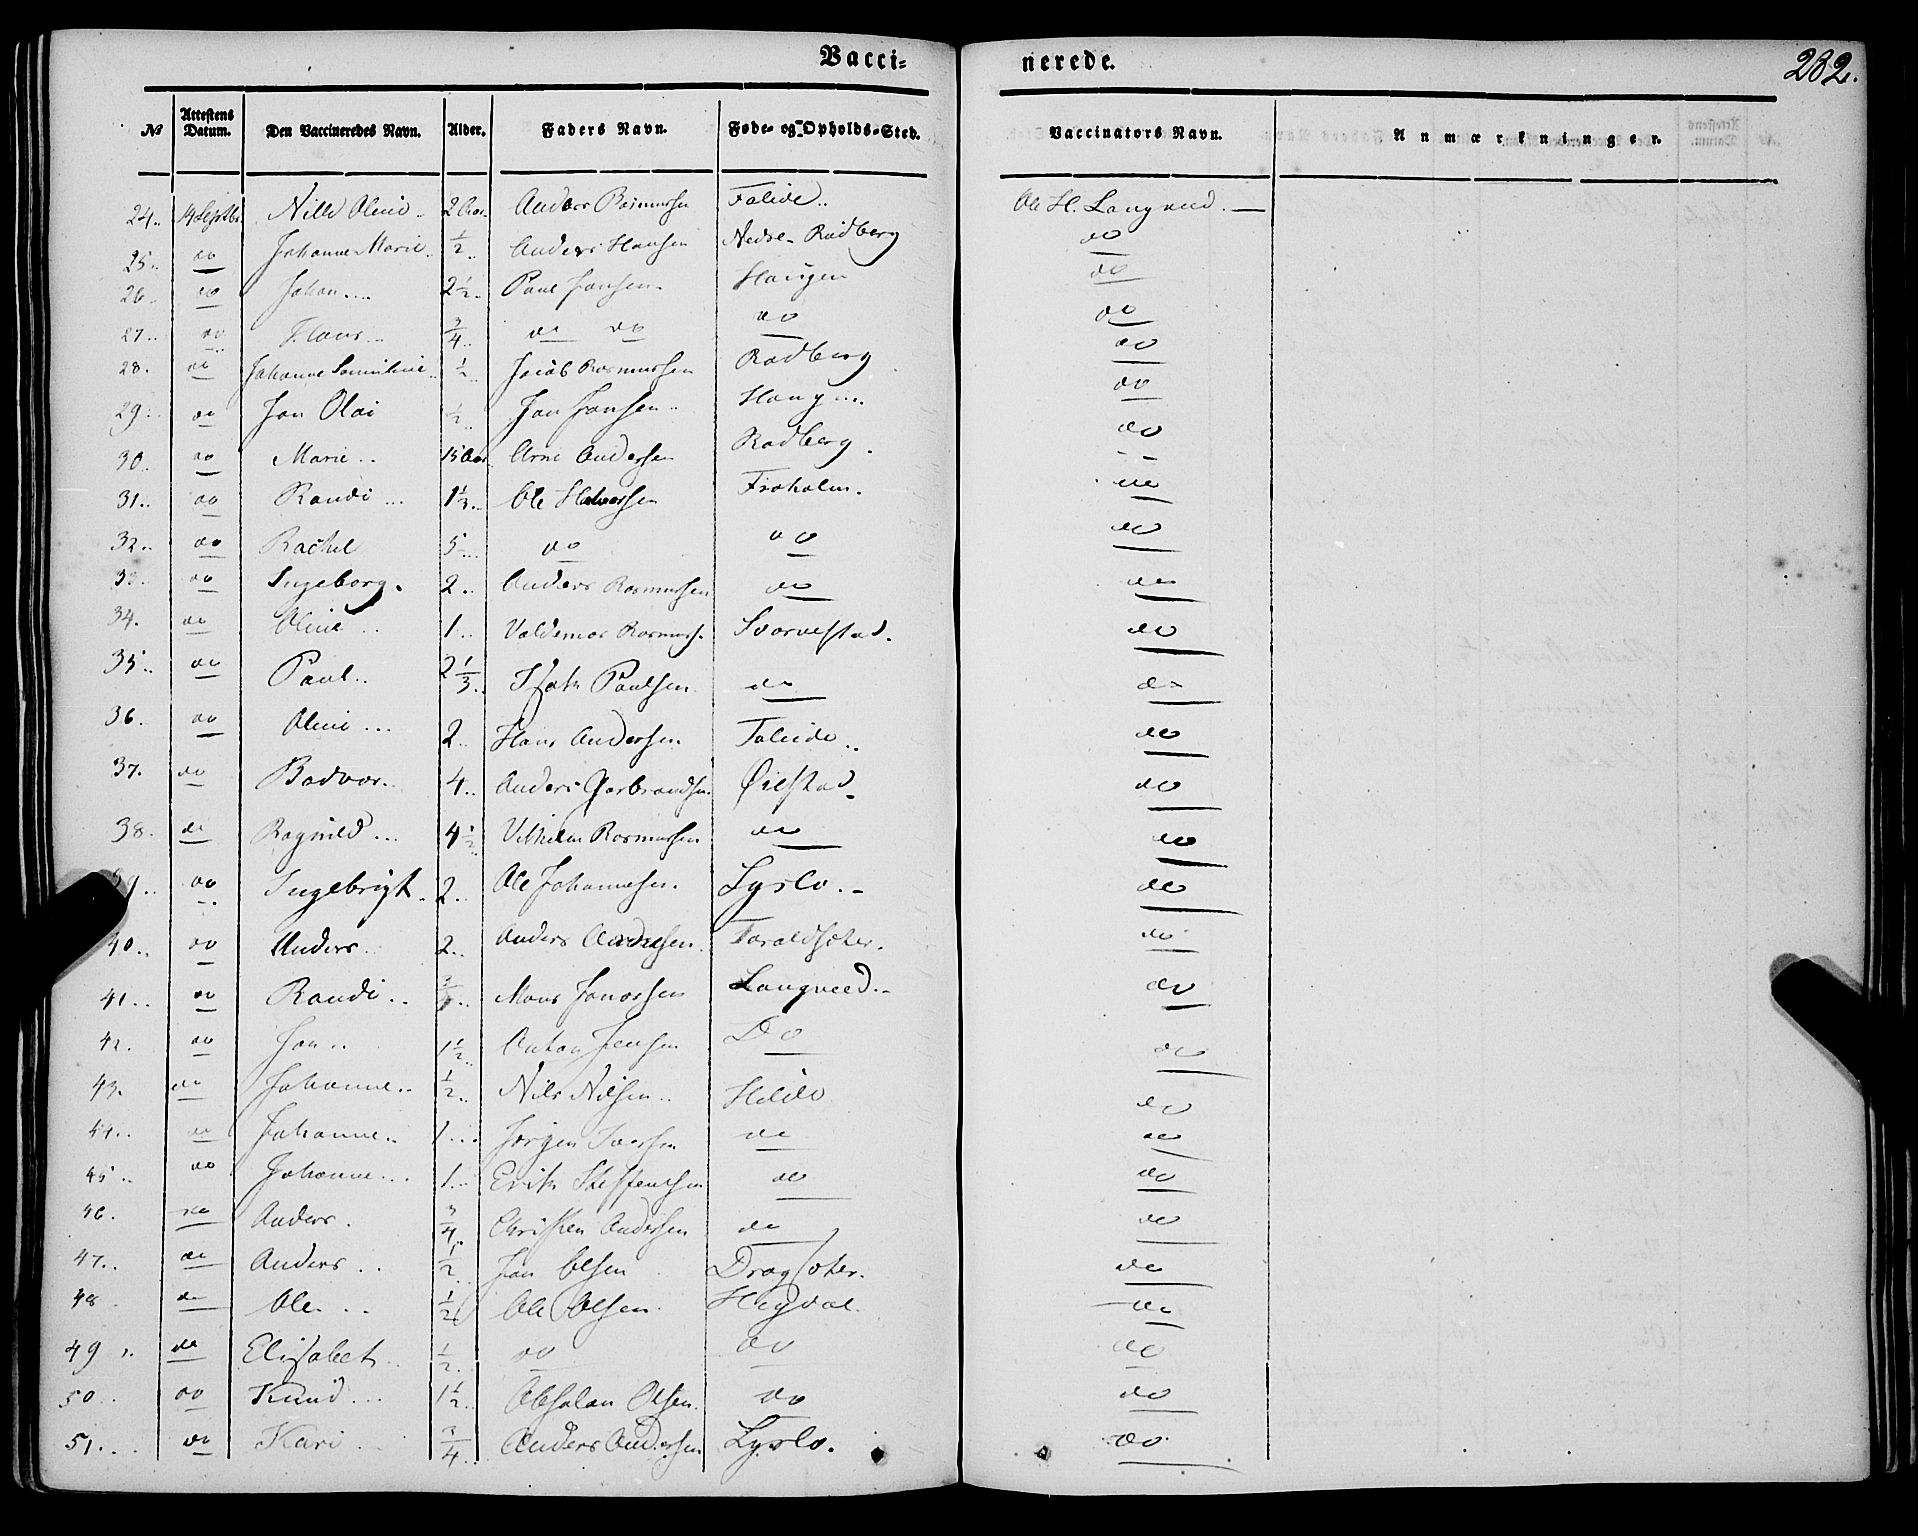 Vacci-nerede.
232.
№ Attestens Datum. Den Vaccineredes Navn. Alder. Faders Navn. Føde- og Opholds-Sted. Vaccinators Navn. Anmærkninger.
24.. 14 Septbr. Nille Oline.. 2 Aar. Anders Rasmussen Faleide.. Ole H. Langveed. —
25.. do Johanne Marie.. ½.. Anders Hansen Nedre Rødberg do
26. do Johan.... 2½.. Paul Jansen. Haugen do
27.. do Hans.. ¾.. do do do do
28. do Johanne ½.. Jacob Rasmussen Rødberg do
29.. do Jon Olai ½.. Jon Jonsen.. Haugen do
30. do Marie.. 15 Aar Arne Andersen Rødberg. do
31.. do Randi... 1½.. Ole Halvorsen Froholm. do
32.. do Rachel 5.... do do do
33. do Ingeborg. 2.. Anders Rasmussen do do
34. do Oline.. 1.. Valdemar Rasmuss. Svorvestad. do
35.. do Paul.. 2⅓.. Isak Paulsen. do do
36. do Oline... 2.. Hans Andersen Faleide.. do
37. do Bodvor.. 4.. Anders Gerbrandsen. Øvrestad do
38. do Ragnild... 4½.. Vilhelm Rasmussen do do
39.. do Ingebrigt. 2.. Ole Johannesen. Lyslo.- do
40.. do Anders.. 2.. Anders Andersen. Taraldseter. do
41.. do Randi.. Mons Jonassen Langveed.- do
42. do Jon.. 1½.. Anton Jensen Do do
43. do Johanne.. ½.. Nils Nilsen.. Hilde do
44.. do Johanne.. 1... Jørgen Iversen do do
45.. do Johanne... 1... Erik Steffensen do do
46. do Anders. ¾.. Christen Andersen do do
47.. do Anders.. ½.. Jon Olsen Dragseter. do
48. do Ole... ½.. Ole Olsen. Hegdal. do
49. do Elisabet.. ½.. do do do
50.. do Knud... 1½.. Absalon Olsen. do do
51... do Kari.. ¾.. Anders Andersen Lyslo. do